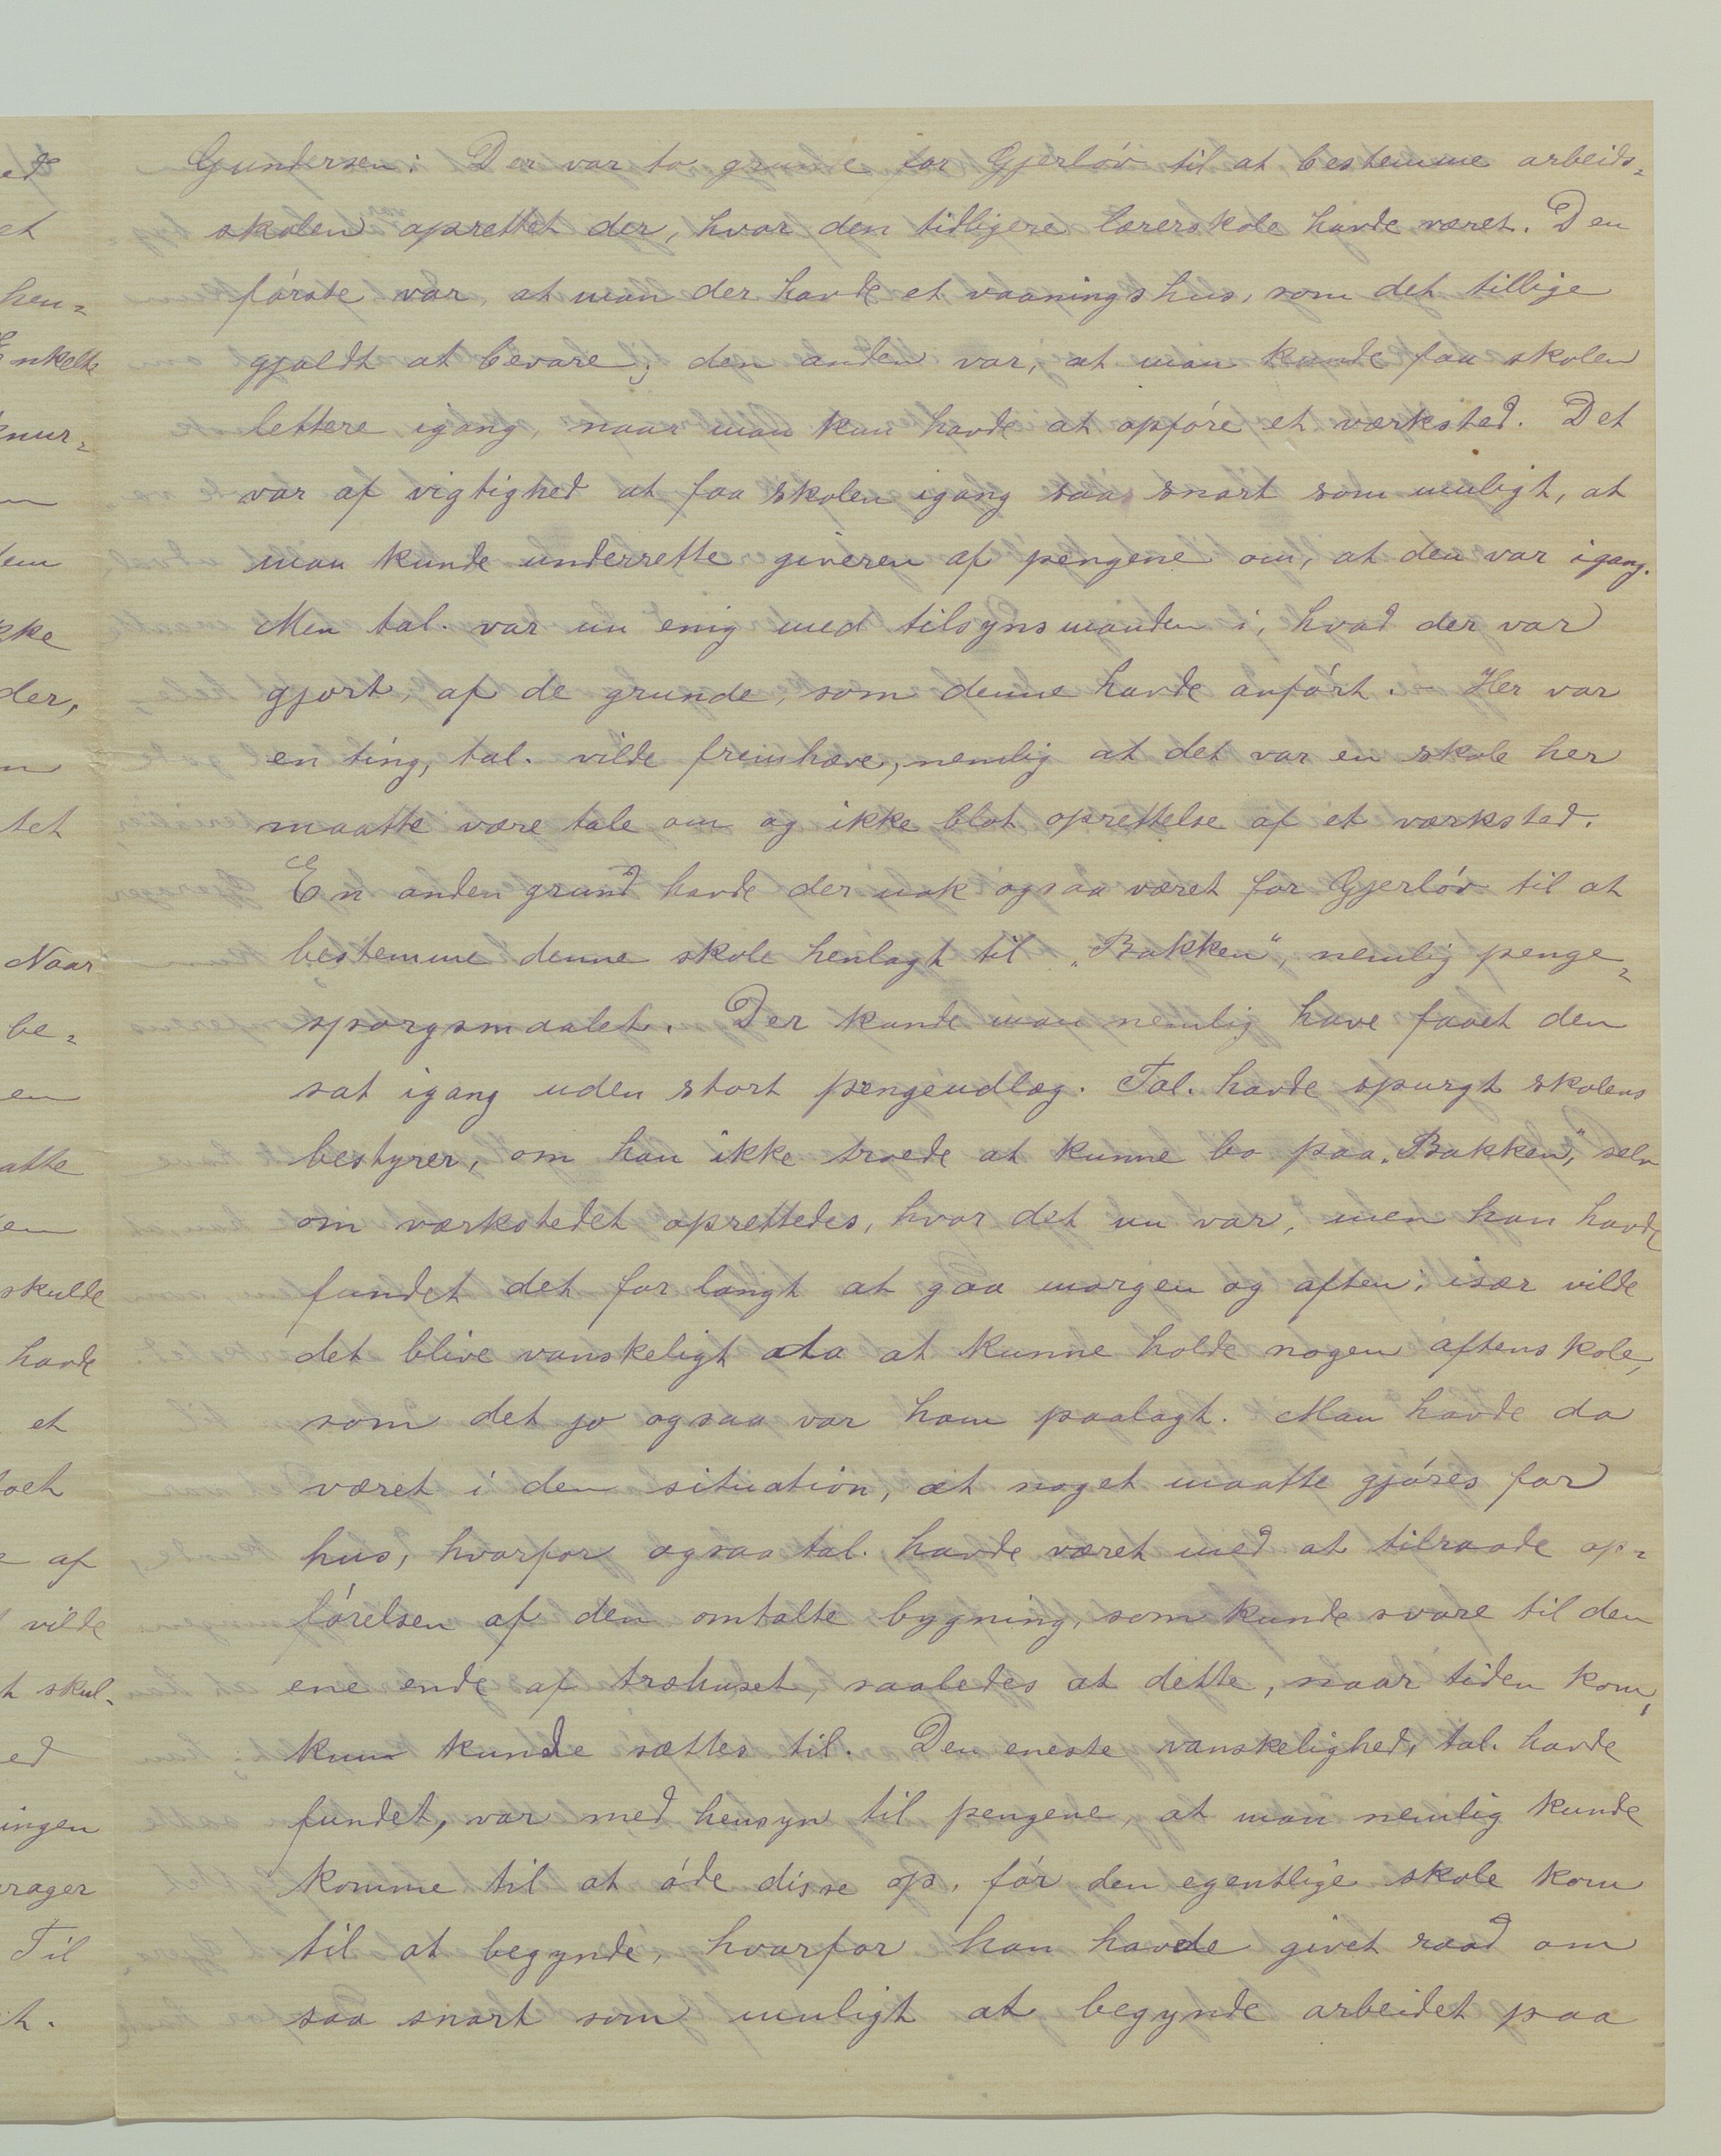 Gundersen: Der var to grunde for Gjerløv til at bestemme arbeids-
skolen oprettet der, hvor den tidligere lærerskole havde været. Den
første var, at man der havde et vaaningshus, som det tillige
gjaldt at bevare; den anden var, at man kunde faa skolen
lettere igang, naar man kun havde at opføre et værksted. Det
var af vigtighed at faa skolen igang saa snart som muligt, at
man kunde underrette giveren af pengene om, at den var igang.
Men tal. var nu enig med tilsynsmanden i, hvad der var
gjort, af de grunde, som denne havde anført. – Her var
en ting, tal. vilde fremhæve, nemlig at det var en skole her
maatte være tale om og ikke blot oprettelse af et værksted.
En anden grund havde der nok ogsaa været for Gjerløv til at
bestemme denne skole henlagt til „Bakken“, nemlig penge-
spørgsmaalet. Der kunde man nemlig have faaet den
sat igang uden stort pengeudlæg. Tal. havde spurgt skolens
bestyrer, om han ikke troede at kunne bo paa „Bakken“, selv
om værkstedet oprettedes, hvor det nu var, men han havde
fundet det for langt at gaa morgen og aften; især vilde
det blive vanskeligt da at kunne holde nogen aftenskole,
som det jo ogsaa var ham paalagt. Man havde da
været i den situation, at noget maatte gjøres for
hus, hvorfor ogsaa tal. havde været med at tilraade op-
førelsen af den omtalte bygning, som kunde svare til den
ene ende af træhuset, saaledes at dette, naar tiden kom,
kun kunde sættes til. Den eneste vanskelighed, tal. havde
fundet, var med hensyn til pengene, at man nemlig kunde
komme til at øde disse op, før den egentlige skole kom
til at begynde, hvorfor han havde givet raad om
saa snart som muligt at begynde arbeidet paa